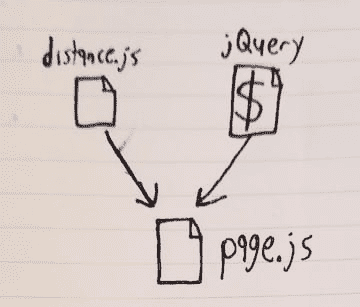 distance.js
jQuery
$
page.js